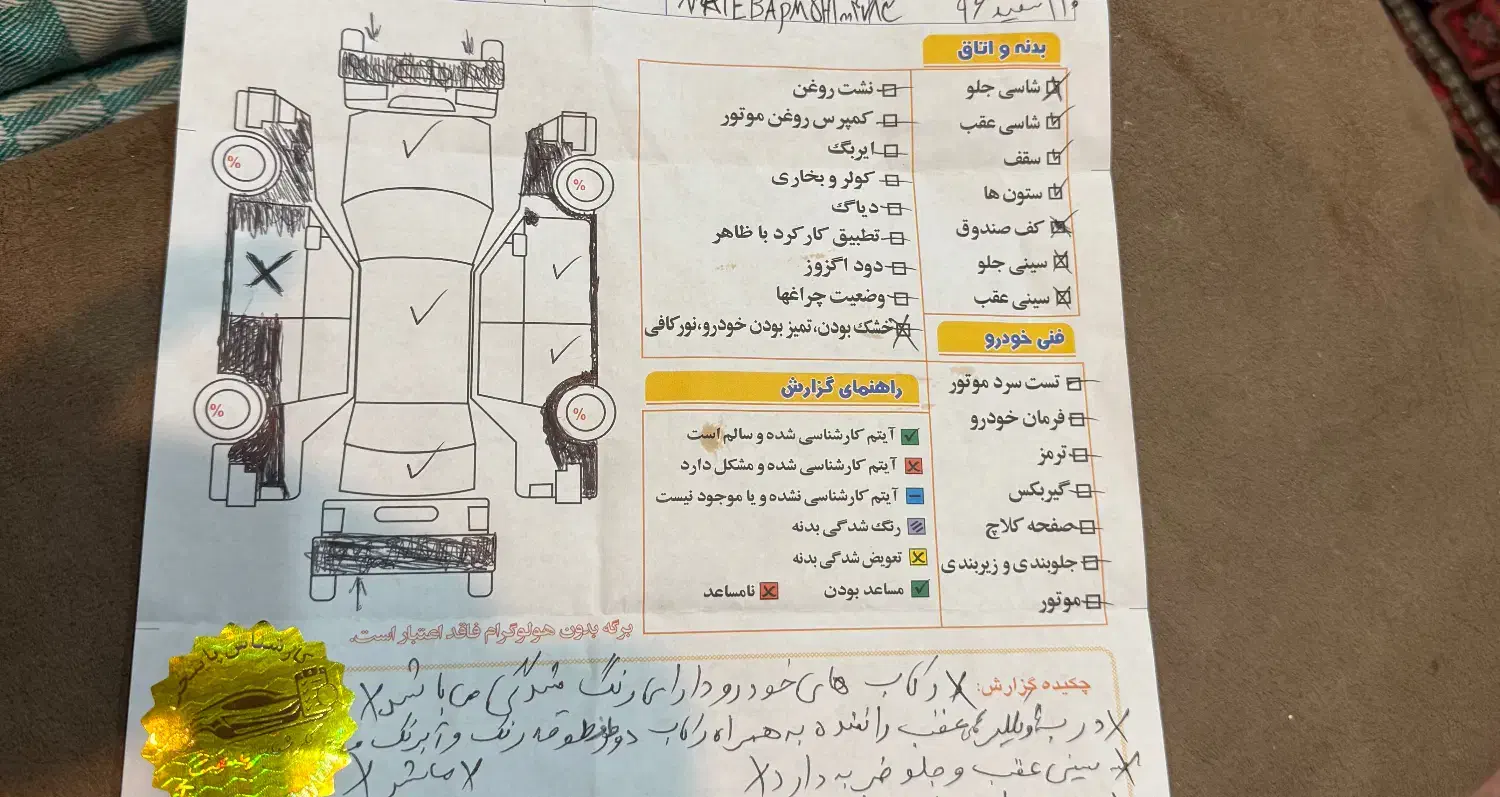 سفید ۹۶
بدنه و اتاق
شاسی جلو
شاسی عقب
سقف
ستون ها
کف صندوق
سینی جلو
سینی عقب
نشت روغن
کمپرس روغن موتور
ایربگ
کولر و بخاری
دیاگ
تطبیق کارکرد با ظاهر
دود اگزوز
وضعیت چراغها
خشک بودن، تمیز بودن خودرو، نور کافی
فنی خودرو
تست سرد موتور
فرمان خودرو
ترمز
گیربکس
صفحه کلاچ
جلوبندی و زیربندی
موتور
راهنمای گزارش
آیتم کارشناسی شده و سالم است
آیتم کارشناسی شده و مشکل دارد
آیتم کارشناسی نشده و یا موجود نیست
رنگ شدگی بدنه
تعویض شدگی بدنه
مساعد بودن
نامساعد
%
%
%
%
برگه بدون هولوگرام فاقد اعتبار است.
چکیده گزارش: رکاب های خودرو دارای رنگ شدگی می باشد
عقب راننده به همراه رکاب رنگ و
سینی عقب و جلو ضربه دارد